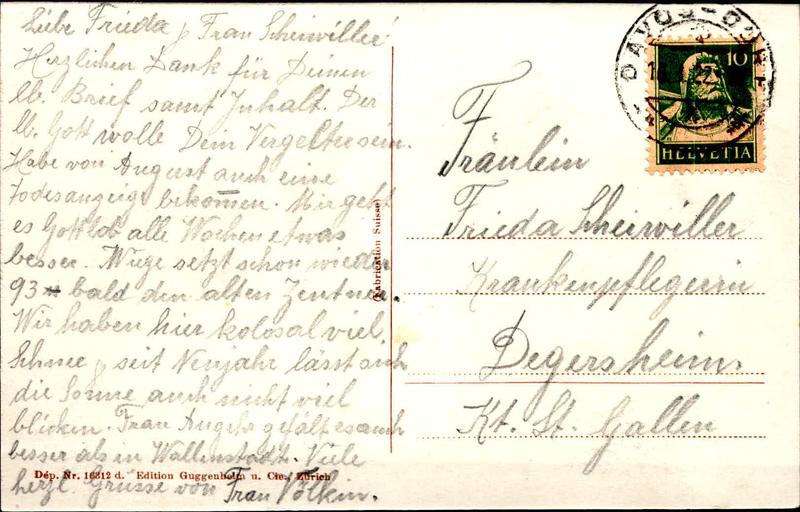 Liebe Frieda, Frau Scheiwiller!
Herzlichen Dank für Deinen
lb. Brief samt Inhalt. Der
lb. Gott wolle Dein Vergelter sein.
Habe von August auch eine
Todesanzeige bekom̄en. Mir geht
es Gottlob alle Wochen etwas
besser. Wiege setzt schon wieder
93 bald den alten Zentner.
Wir haben hier kolosal viel
Schnee, seit Neujahr lässt sich
die Sonne auch nicht viel
blicken. Frau Angehr gefält es auch
besser als in Wallenstadt. Viele
herzl. Grüsse von Frau Völkin.
Dép. Nr. 16312 d. Edition Guggenheim u. Cie., Zürich
(Fabrication Suisse)
DAVOS-DORF
10
HELVETIA
Fräulein
Frieda Scheiwiller
Krankenpflegerin
Degersheim.
Kt. St. Gallen